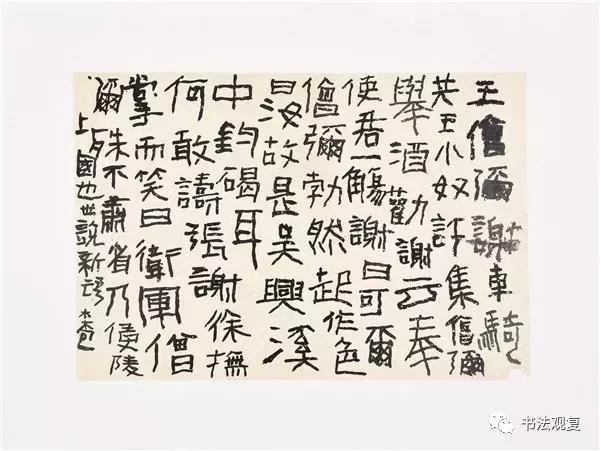 王僧彌謝車騎
共王小奴許集僧彌
舉酒勸謝云奉
使君一觴謝曰可爾
僧彌勃然起作色
曰汝故是吳興溪
中釣碣耳
何敢譸張謝徐撫
掌而笑曰衛軍僧
彌殊不肅省乃侵陵
上國也世說新語
书法观复